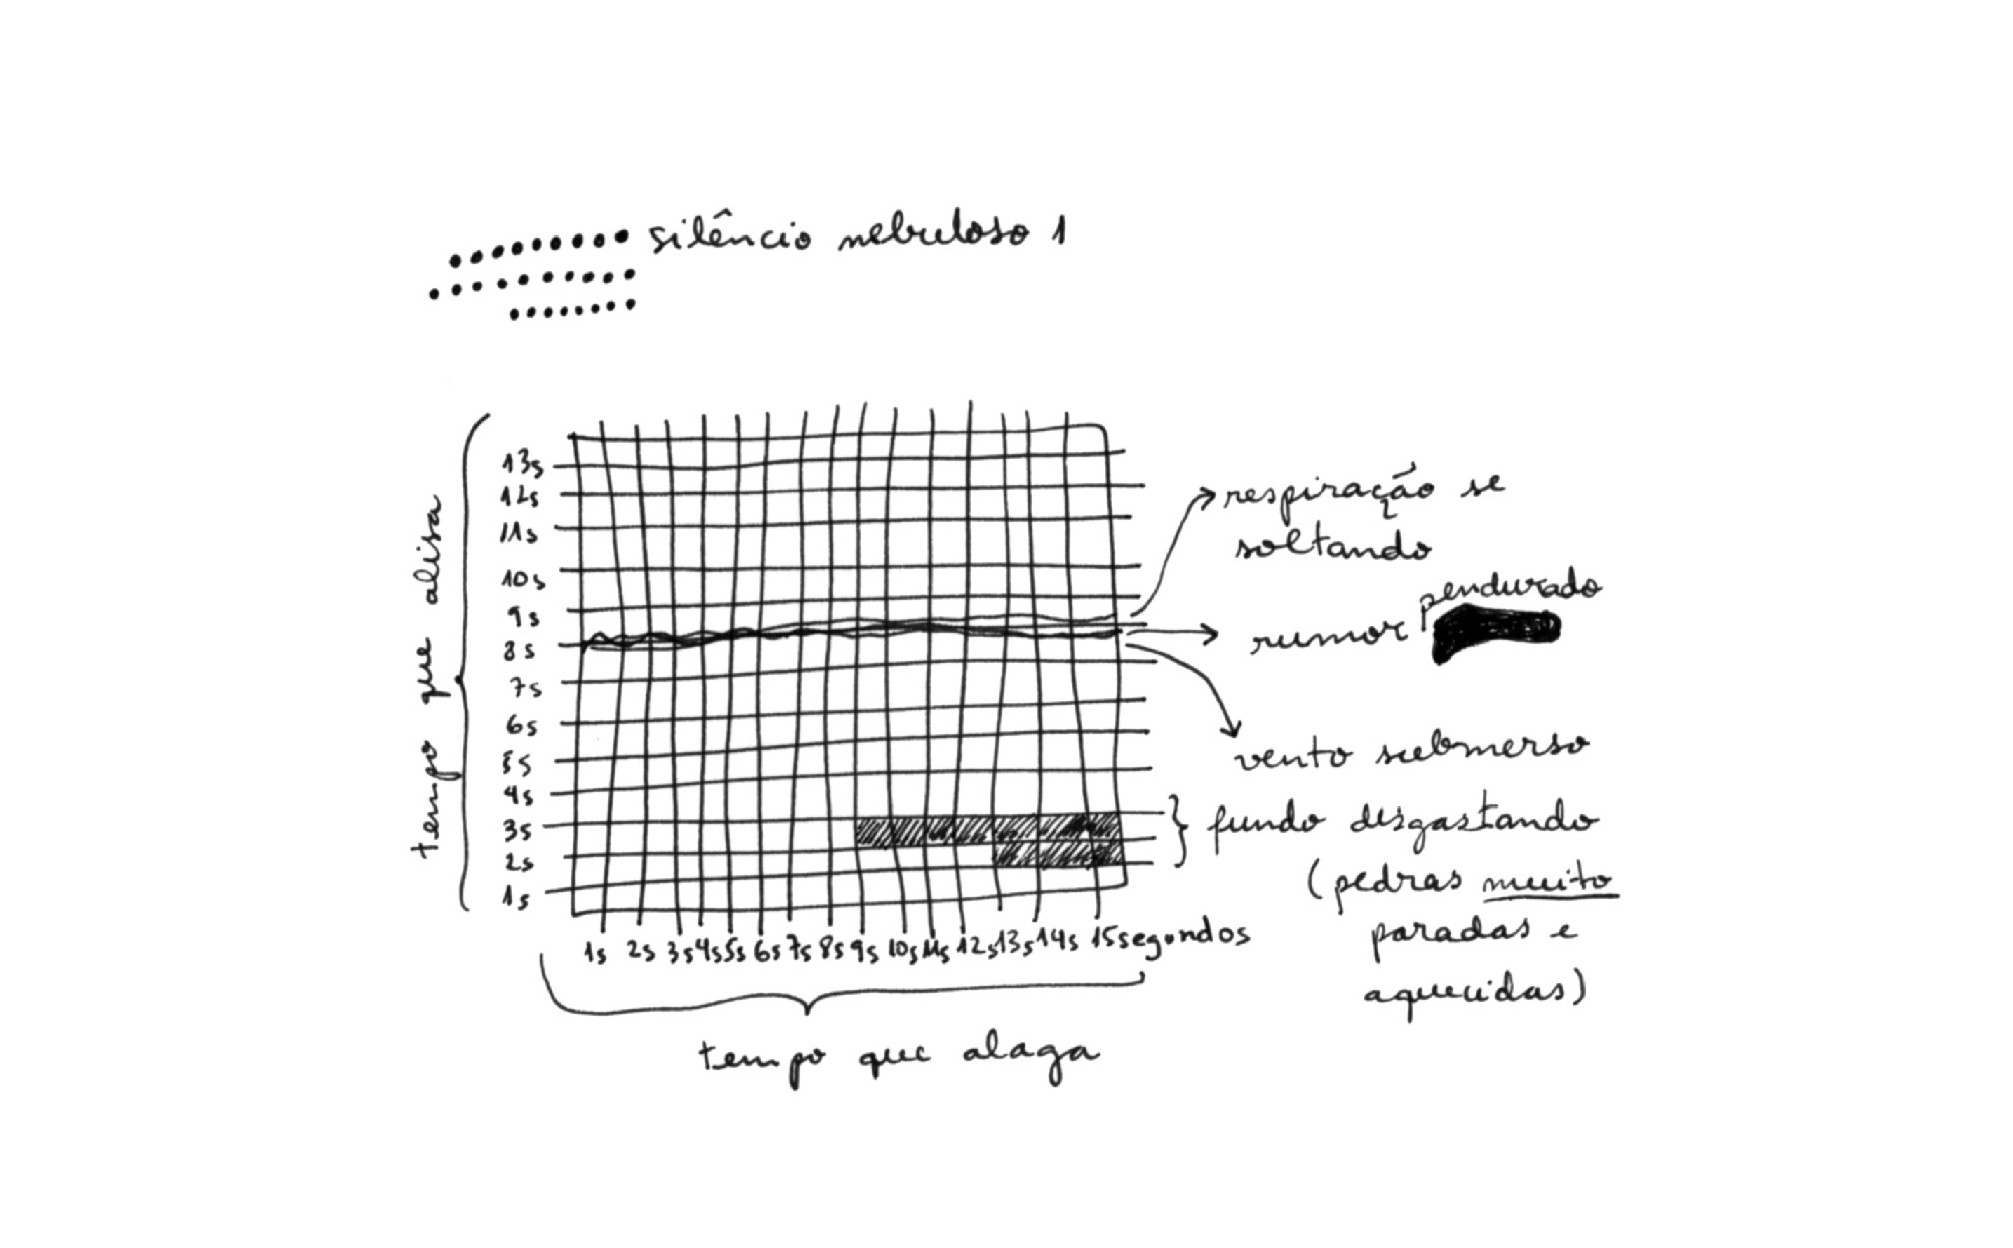 silêncio nebuloso 1
tempo que alisa
13s
12s
11s
10s
9s
8s
7s
6s
5s
4s
3s
2s
1s
1s 2s 3s 4s 5s 6s 7s 8s 9s 10s 11s 12s 13s 14s 15segundos
tempo que alaga
respiração se
soltando
pendurado
rumor
vento submerso
fundo desgastando
(pedras muito
paradas e
aquecidas)